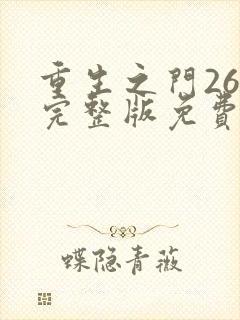 重生之門26
完整版免費
蝶隐青薇